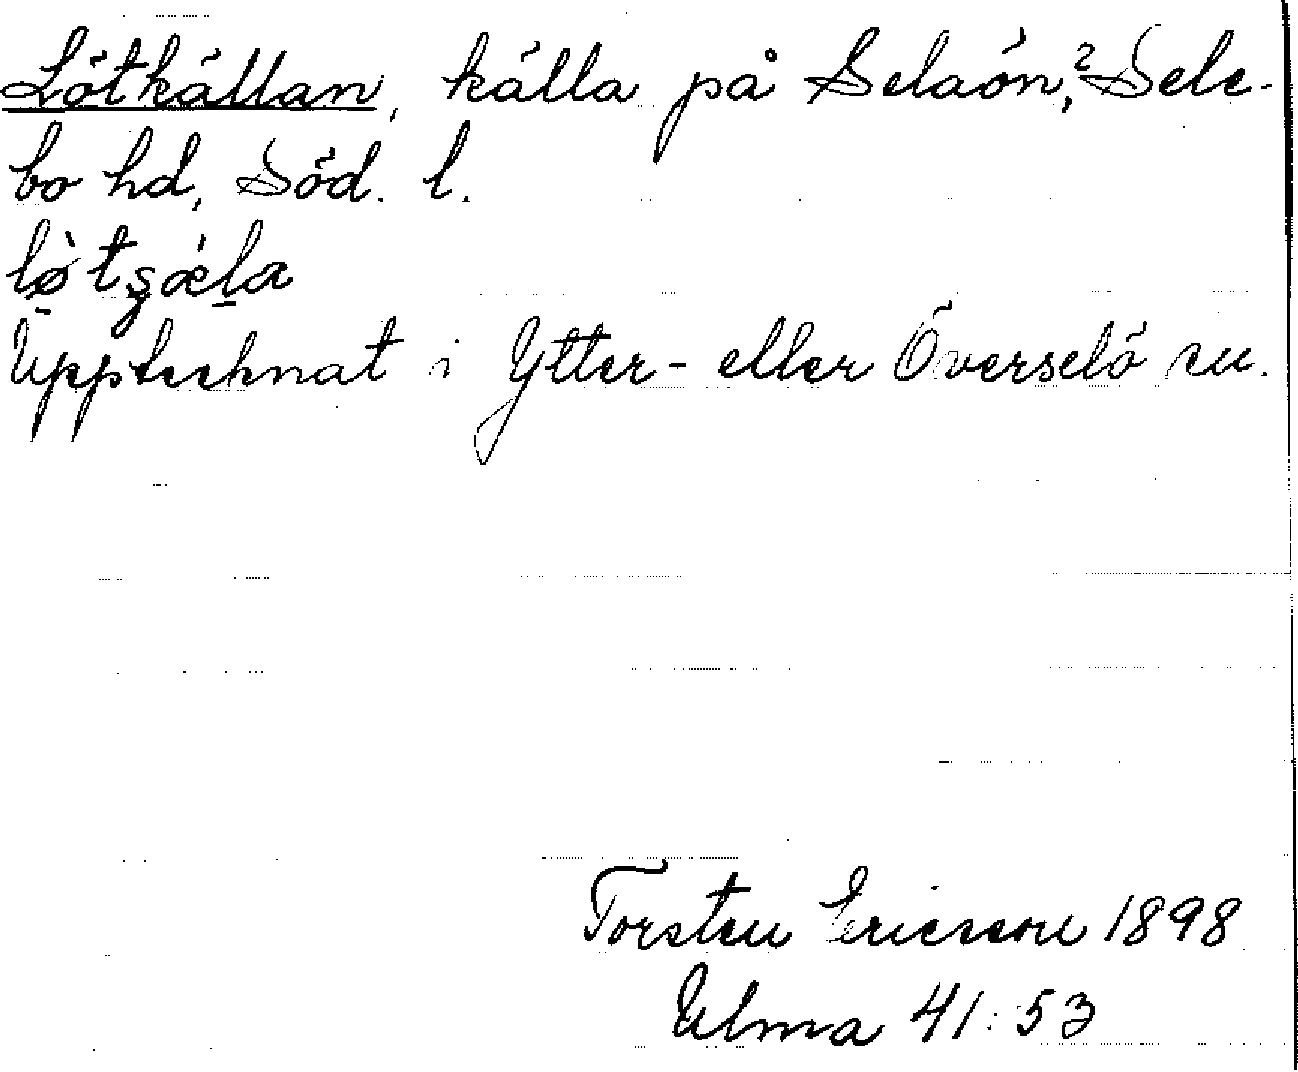 Lötkällan, källa på Selaön,? Sele-
bo hd, Söd. l.
Upptecknat i Ytter- eller Överselö sn.
Torsten Ericsson 1898
Ulma 41:53